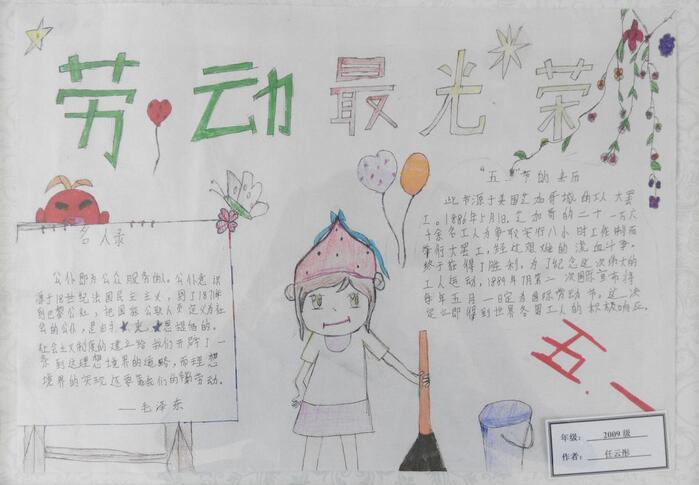 劳动最光荣
"五一"节的来历
此节源于美国芝加哥城的工人大罢
工。1886年5月1日,芝加哥的二十一万六
千余名工人为争取实行八小时工作制而
举行大罢工,经过艰难的流血斗争,
终于获得了胜利。为了纪念这次伟大的
工人运动,1889年7月第二次国际宣布将
每年五月一日定为国际劳动节。这一决
定立即得到世界各国工人的积极响应。
名人录
公仆即为公众服务的人。公仆意识
源于18世纪法国民主主义,到了1871年
的巴黎公社,把国家公职人员定义为社
会的公仆,是由
思想提他的。
社会主义制度的建立给我们开辟了一
条到达理想境界的道路,而理想
境界的实现还要靠我们的辛勤劳动。
——毛泽东
五.一
年级: 2009级
作者: 任云彤